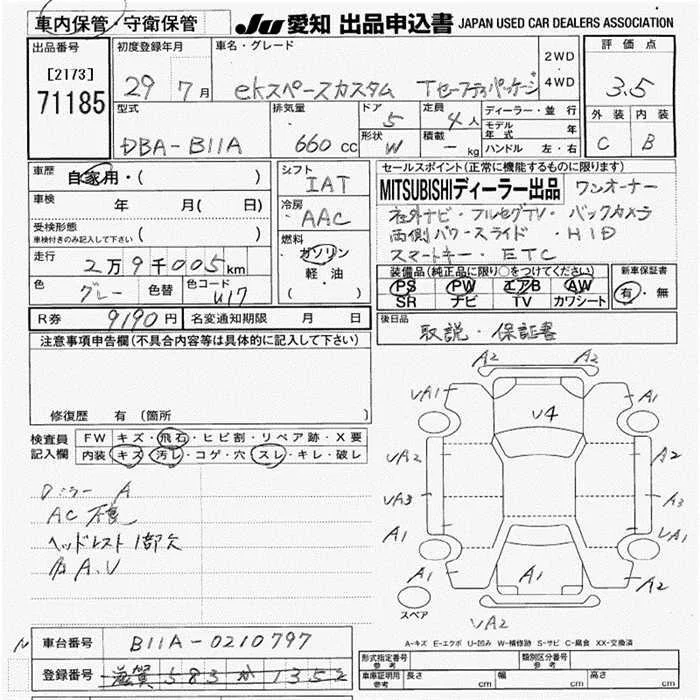 車内保管・守衛保管
JU 愛知 出品申込書 JAPAN USED CAR DEALERS ASSOCIATION
出品番号
[2173]
71185
初度登録年月
29 7月
車名・グレード
ekスペースカスタム Tセーフティパッケージ
2WD
・
4WD
評価点
3.5
外装 内装
C B
型式
DBA-B11A
排気量
660cc
ドア
5
形状
W
定員
4人
積載
- kg
ディーラー・並行
モデル年式 年
ハンドル 左・右
車歴
自家用・( )
車検 年 月( 日)
受検形態
車検付きのみ記入して下さい ( )
走行
2万9千005km
色
グレー
色替
色コード
U17
シフト
IAT
冷房
AAC
燃料
ガソリン
軽・油
( )
セールスポイント(正常に機能するものに限ります)
MITSUBISHIディーラー出品 ワンオーナー
社外ナビ・フルセグTV・バックカメラ
両側パワースライド・HID
スマートキー・ETC
装備品(純正品に限り○をつけてください)
PS PW エアB AW
SR ナビ TV カワシート
新車保証書
有・無
R券 9190円 名変通知期限 月 日
後日品
取説・保証書
注意事項申告欄(不具合内容等は具体的に記入して下さい)
修復歴 有(箇所 )
検査員
記入欄
FW キズ・飛石・ヒビ割・リペア跡・X要
内装 キズ・汚レ・コゲ・穴・スレ・キレ・破レ
ミラーA
AC不良
ヘッドレスト1部欠
A.U
A2 A2
UA1 A1
U4
UA2 A2
UA3 A3
A1 UA1
A1 A1 A2
スペア
UA2
A-キズ E-エクボ U-凹み W-補修跡 S-サビ C-腐食 XX-交換済
車台番号 B11A-0210797
登録番号 滋賀 583 か 1352
形式指定番号
参考
類別区分番号
参考
車庫証明用
参考
長さ cm 幅 cm 高さ cm